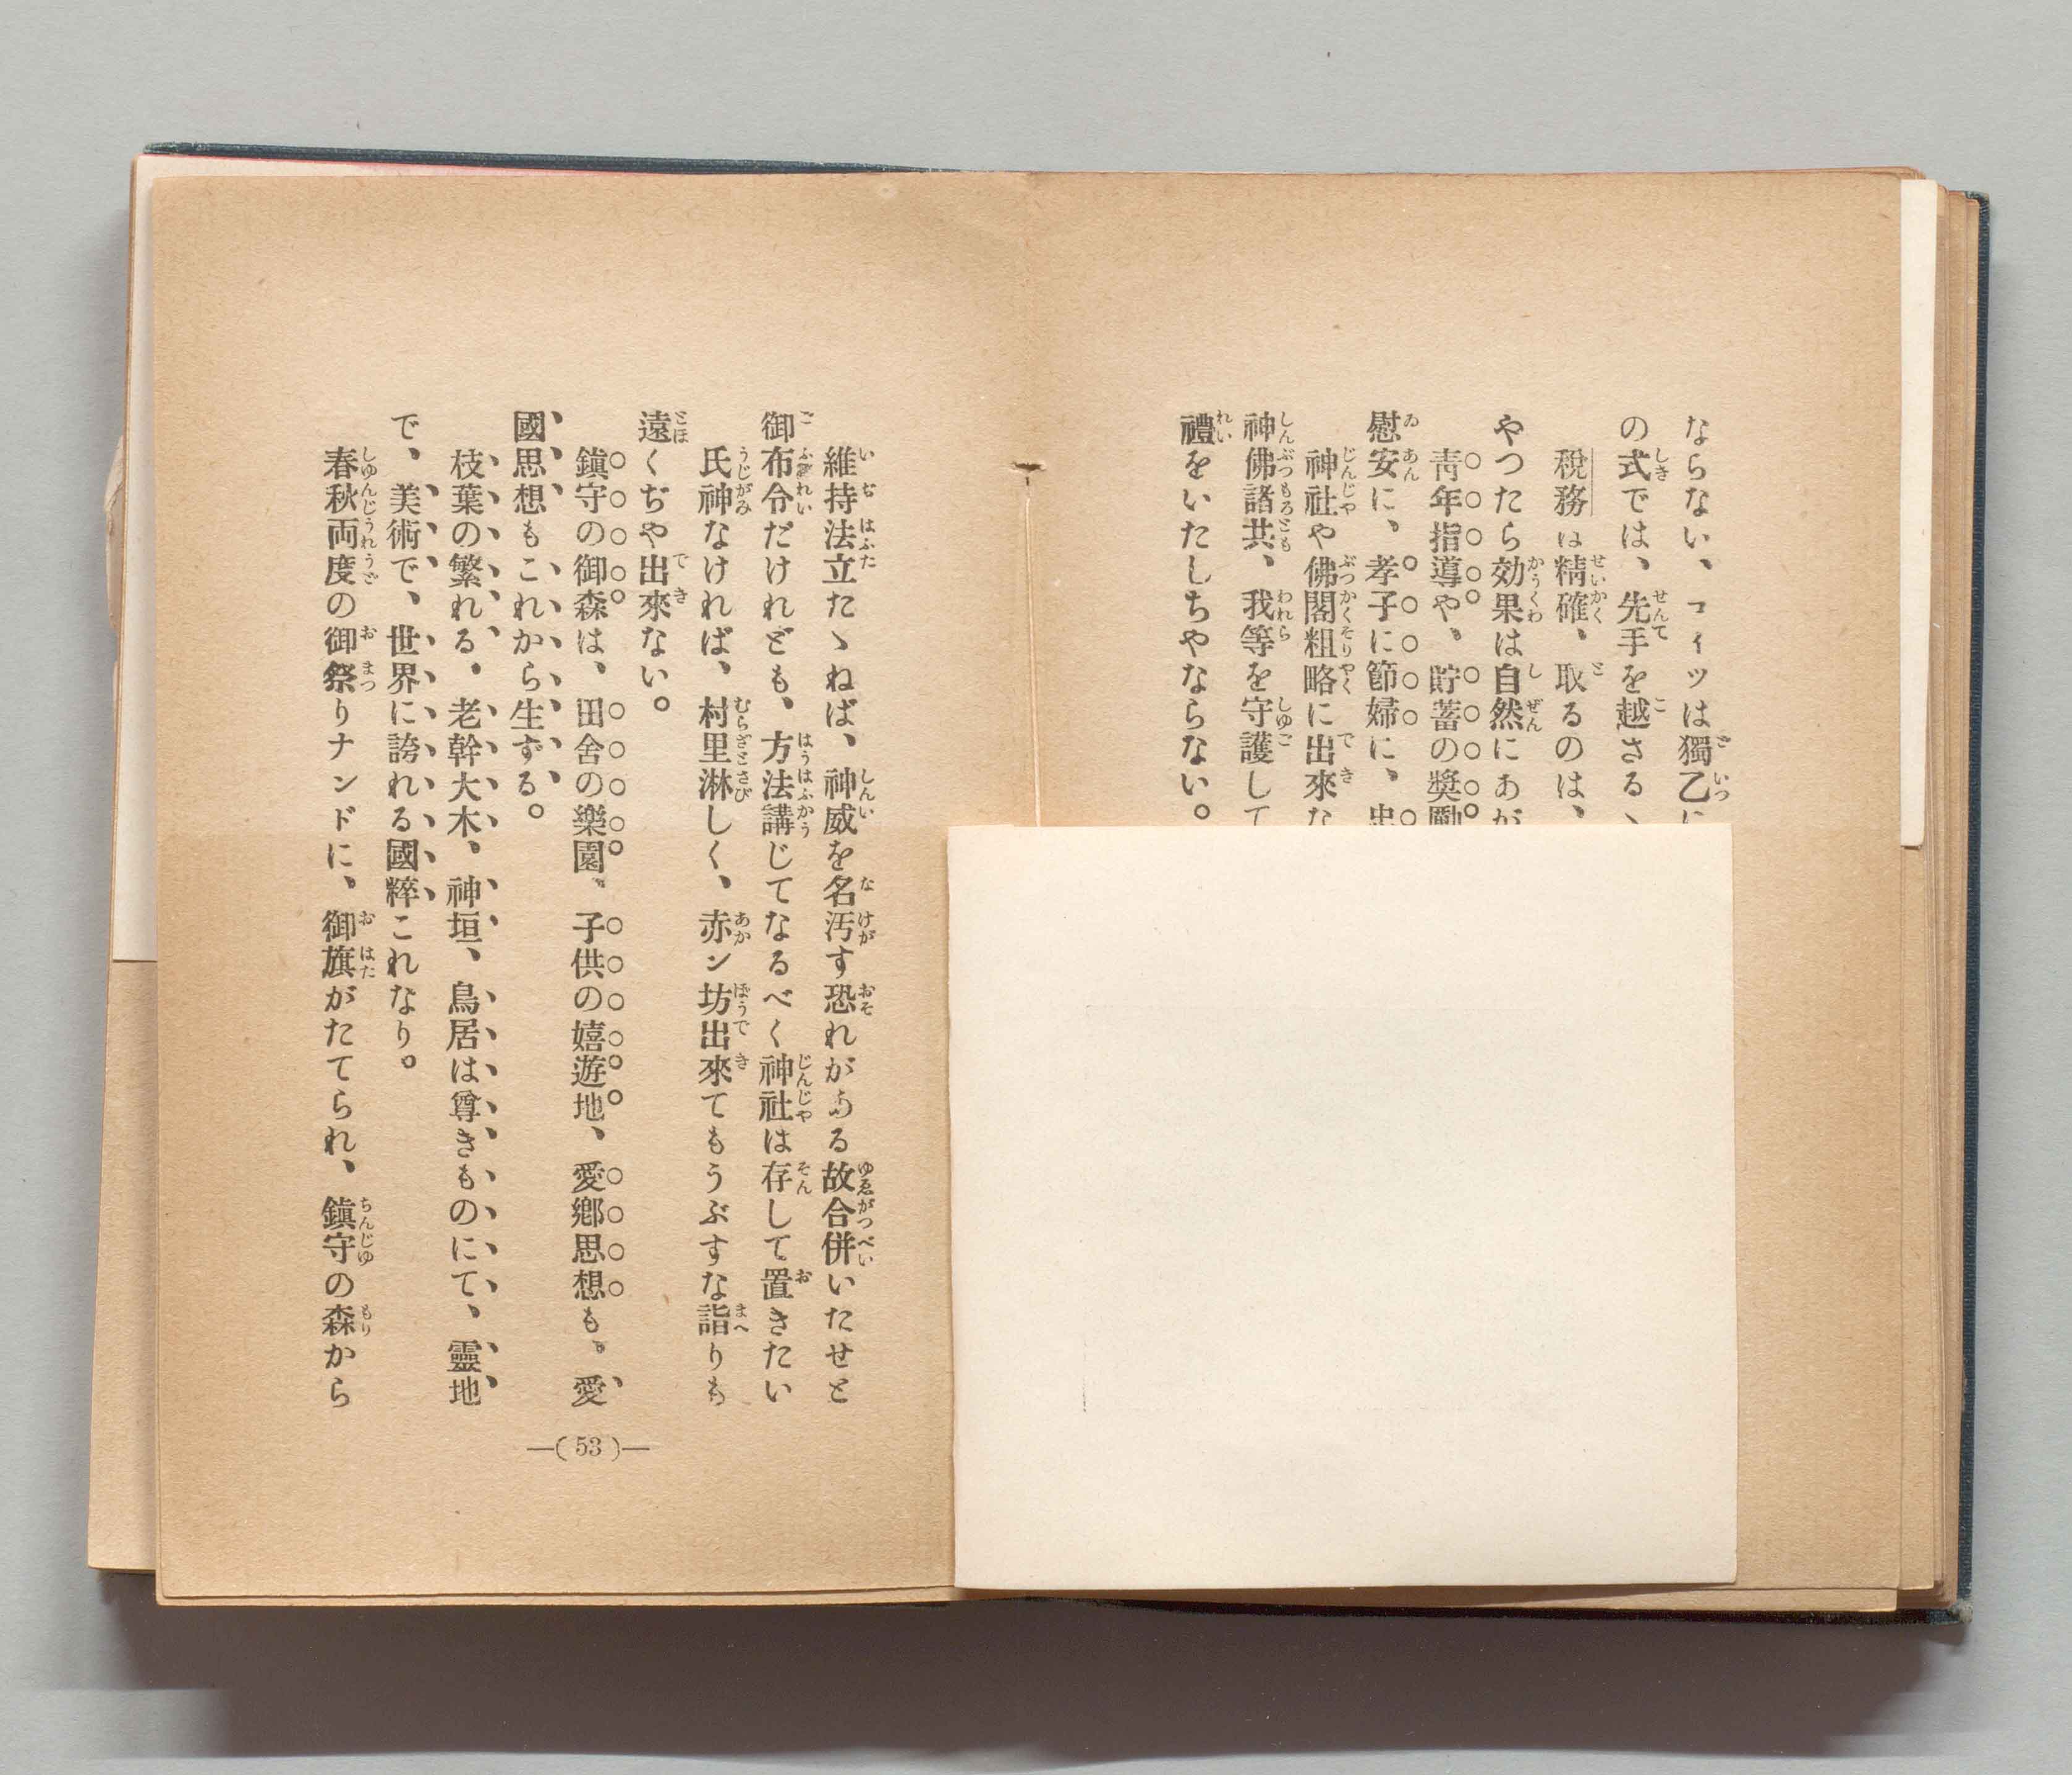 ならない、コイツは獨乙に
の式では、先手を越さるゝ
税務は精確、取るのは、
やつたら効果は自然にあが
靑年指導や、貯蓄の奬勵
慰安に、孝子に節婦に、忠
神社や佛閣粗略に出來な
神佛諸共、我等を守護して
禮をいたしちやならない。
維持法立たゝねば、神威を名汚す恐れがある故合併いたせと
御布令だけれども、方法講じてなるべく神社は存して置きたい
氏神なければ、村里淋しく、赤ン坊出來てもうぶすな詣りも
遠くぢや出來ない。
鎭守の御森は、田舍の樂園、子供の嬉遊地、愛鄕思想も、愛
國思想もこれから生ずる。
枝葉の繁れる、老幹大木、神垣、鳥居は尊きものにて、靈地
で、美術で、世界に誇れる國粹これなり。
春秋両度の御祭りナンドに、御旗がたてられ、鎭守の森から
—( 53 )—